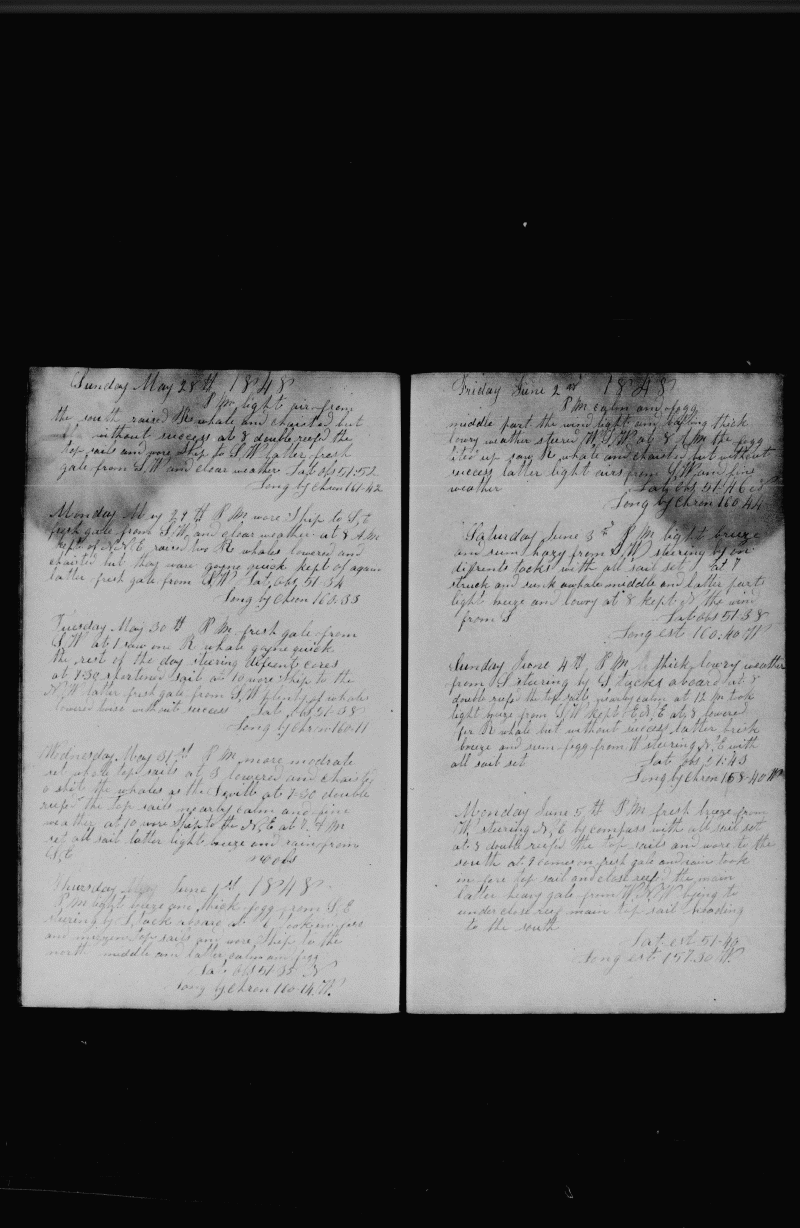 Sunday May 28th 1848
P M light airs from
the south raised R whale and chaisted but
without success at 8 double reefed the
top sails and wore Ship to S, W latter fresh
gale from S, W and clear weather Lat obs 51-52
Long by Chron 161-42
Monday May 29 th P M wore Ship to S, E
fresh gale from S, W, and clear weather at 8 A M
kept of N, N, E raised two R whales lowered and
chaisted but they ware goyne quick kept of again
latter fresh gale from S W Lat, obs, 51-34
Long by Chron 160-33
Tuesday May 30 th P M fresh gale from
S, W at 1 saw one R whale goyne quick
the rest of the day steering difrent corses
at 7-30 shortened sail at 10 wore Ship to the
N, W latter fresh gale from S, W plenty of whales
lowered twise without success Lat obs 51-38
Long by Chron 160-11
Wednesday May 31 st P M more moderate
set all the top sails at 3 lowered and chaisted
the whales at 7-30 double
reefd the top sails nearly calm and fine
weather at 10 wore Ship to the N, E at 7 A M
set all sail latter light breeze and rain from
S, E no obs
Thursday June 1 st, 1848
P M light breze and thick fogg from S, E
stering by S, tack aboard at took in
and mizen top sails and wore Ship to the
north middle and latter calm and fogg
Lat, obs 51-35 N
Long by Chron 160-14 W
Friday June 2 nd 1848
P M calm and fogg
middle part the wind light and bafling thick
lowry weather steered W, S, W at 8 A M the fogg
lited up saw R whale and chaisted but without
success latter light airs from S, W and fine
weather Lat obs 51-46 N
Long by Chron 160-44
Saturday June 3 d P M light breeze
and sum hazy from S, W steering by on
difrents tacks with all sail set at 7
struck and sunk a whale middle and latter parts
light breeze and lowry at 8 kept N, the wind
from S Lat obs 51-38
Long est 160-40 W
Sunday June 4 th, P M thick lowry weather
from S stering by S tacks aboard at 8
double reefd the top sails nearly calm at 12 M took
light breeze from S, W kept E N, E at 8 lowered
for R whale but without success latter brisk
breeze and sum fogg from W steering N, E with
all sail set Lat obs, 51-43
Long by Chron 158-40 W
Monday June 5 th P M fresh breeze from
W, steering N, E by compass with all sail set
at 8 double reefd the top sails and wore to the
south at 9 comes on fresh gale and rain took
in fore top sail and close reefd the main
latter heavy gale from W, N, W lying to
under close reef main top sail heading
to the south
Lat est 51-40
Long est 157-30 W,